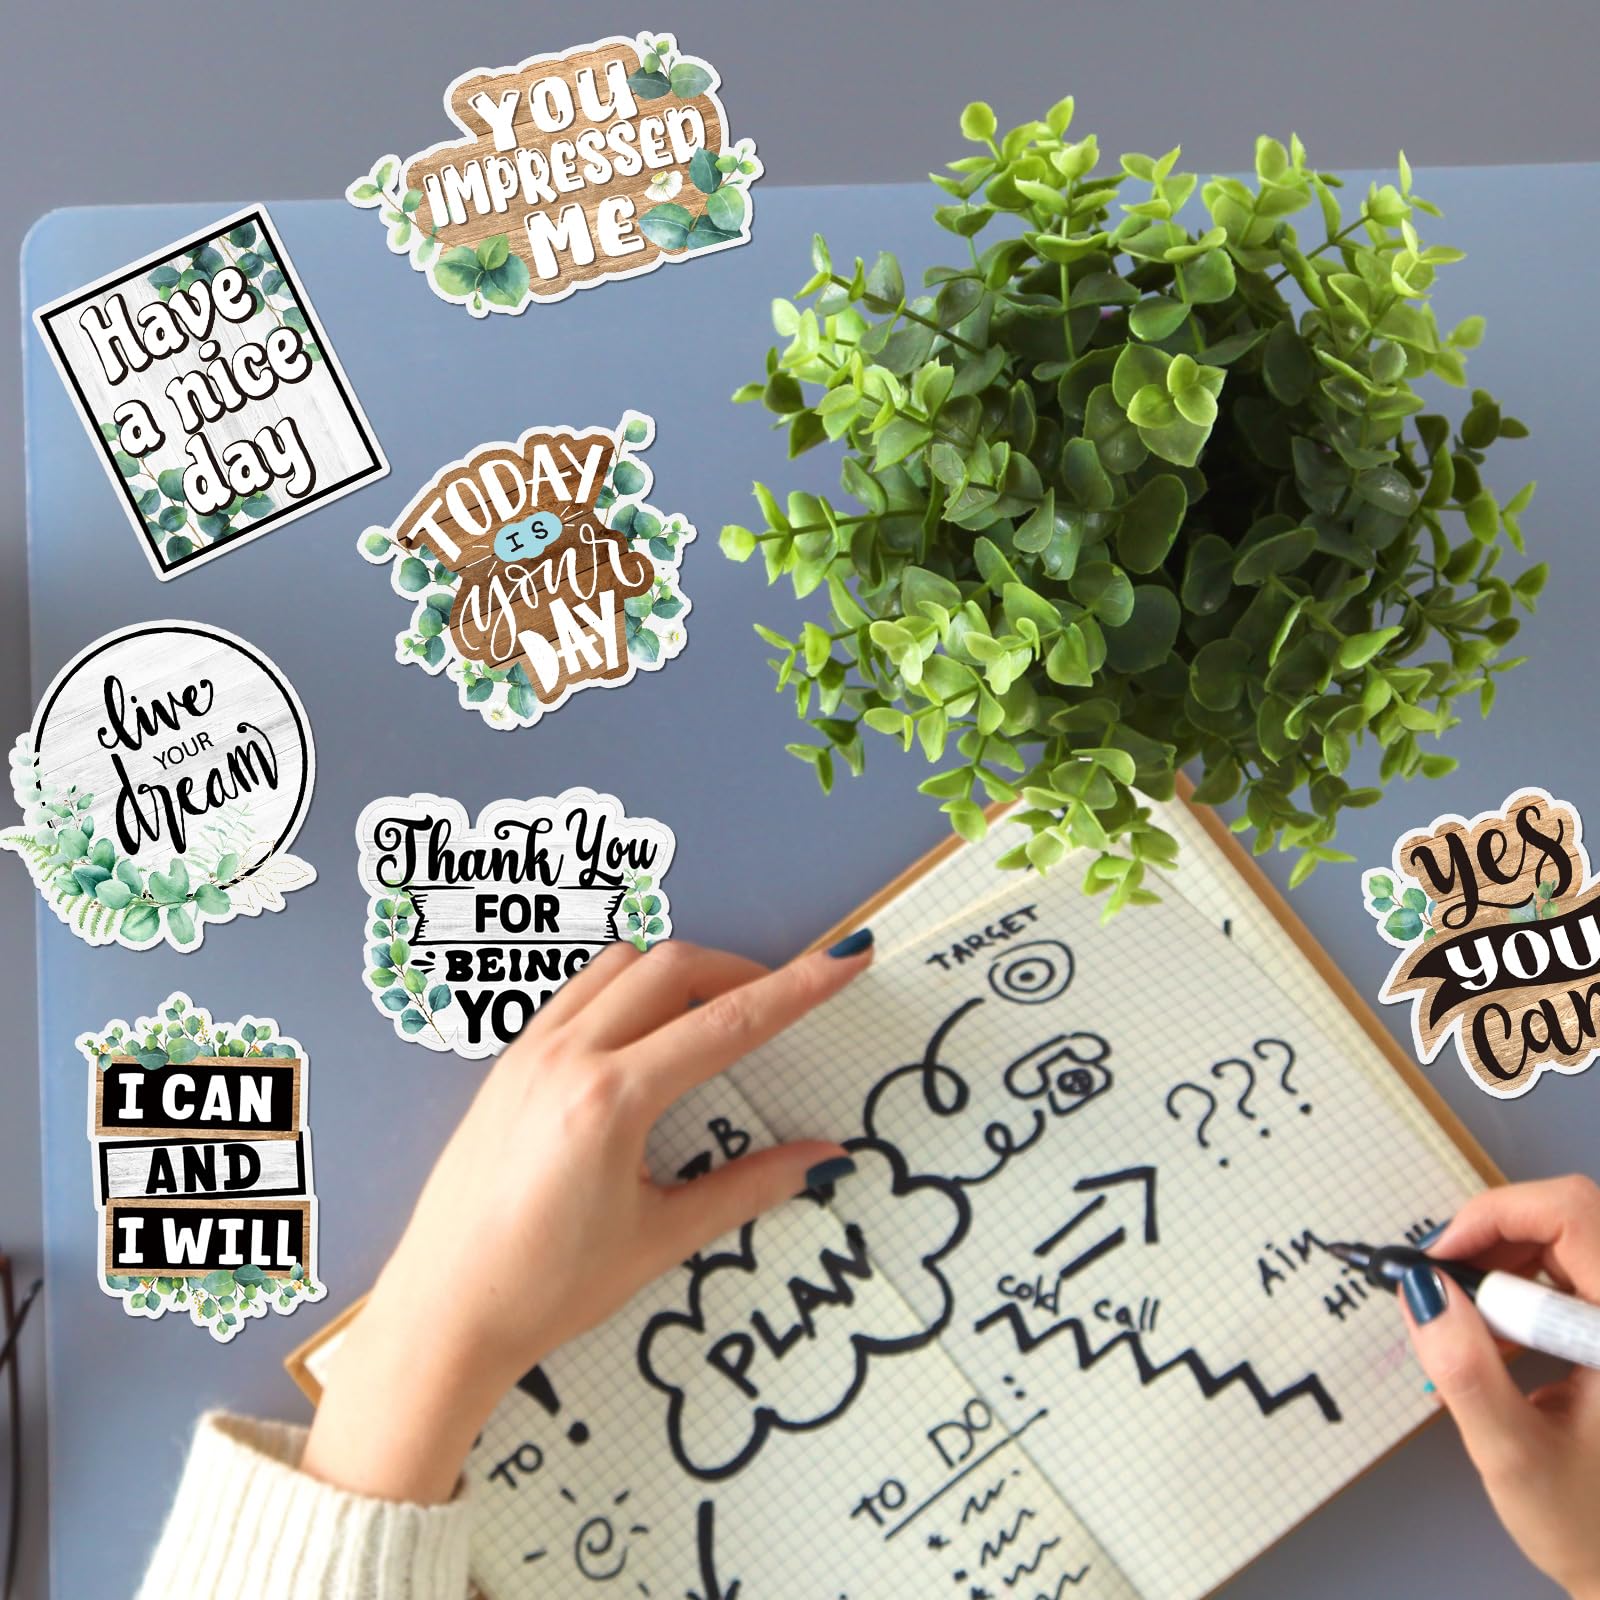 YOU
IMPRESSED
ME
Have
a nice
day
TODAY
IS
your
DAY
live
YOUR
dream
Thank You
FOR
BEING
YOU
Yes
YOU
Can
I CAN
AND
I WILL
TARGET
???
B
PLAN
Aim
Cold
call
TO DO:
TO